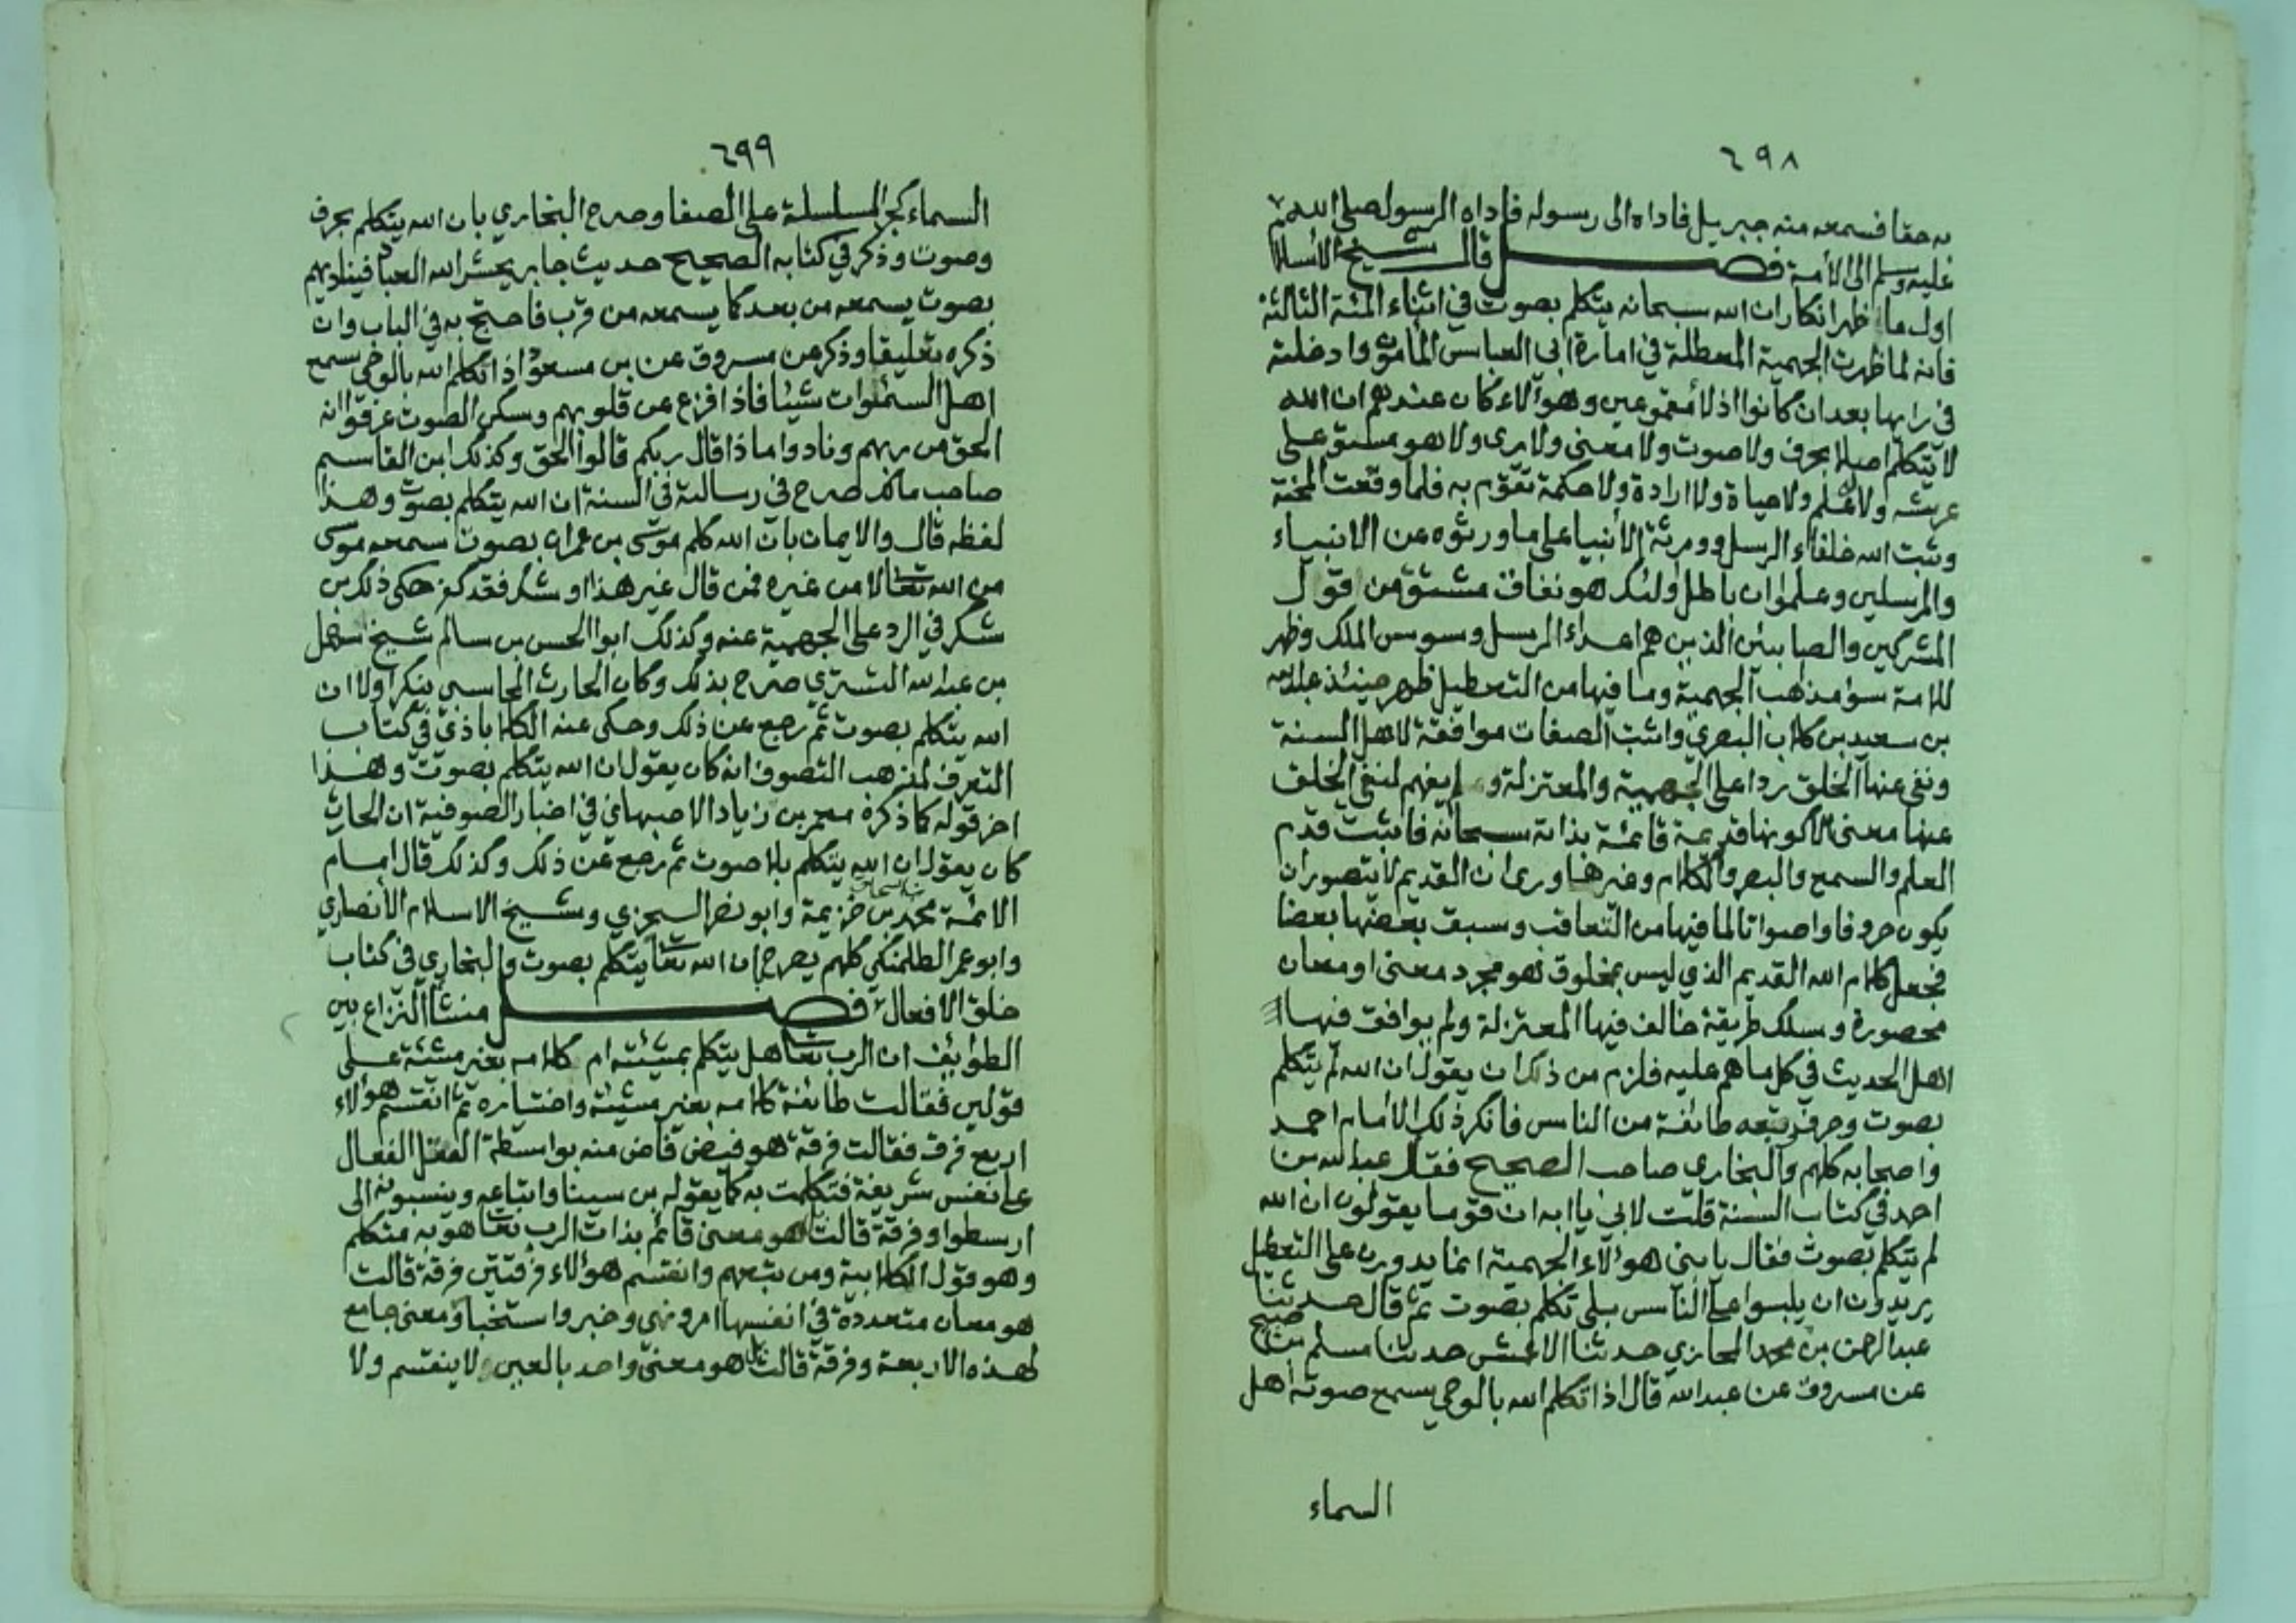 ٦٩٨
به حقا فسمعه منه جبريل فاداه الى رسوله فاداه الرسول صلى الله
عليه وسلم الى الأمة فصل قال شيخ الاسلام
اول ما ظهر انكار ان الله سبحانه يتكلم بصوت في اثناء المئة الثالثة
فانه لما ظهرت الجهمية المعطلة في امارة ابي العباس المأمون وادخلته
في رايها بعد ان كانوا اذلا مقموعين وهوآلاء كان عندهم ان الله
لا يتكلم اصلا بحرف ولا صوت ولا معنى ولا يرى ولا هو مستو على
عرشه ولا علم ولا حياة ولا ارادة ولا حكمة تقوم به فلما وقعت المحنة
وثبت الله خلفاء الرسل وورثة الأنبيا على ما ورثوه عن الانبياء
والمرسلين وعلموا ان باطل اولئك هو نفاق مشتق من قول
المشركين والصابئين الذين هم اعداء الرسل وسوس الملك وظهر
للامة سوء مذهب الجهمية وما فيها من التعطيل ظهر حينئذ عبد الله
بن سعيد بن كلاب البصري واثبت الصفات موافقة لاهل السنة
ونفى عنها الخلق ردا على الجهمية والمعتزلة ولم يفهم لنفي الخلق
عنها معنى الا كونها قديمة قائمة بذاته سبحانه فاثبت قدم
العلم والسمع والبصر والكلام وغيرها وراى ان القديم لا يتصور ان
يكون حروفا واصواتا لما فيها من التعاقب وسبق بعضها بعضا
فجعل كلام الله القديم الذي ليس بمخلوق هو مجرد معنى او معان
محصورة وسلك طريقة خالف فيها المعتزلة ولم يوافق فيها
اهل الحديث في كل ما هم عليه فلزم من ذلك ان يقول ان الله لم يتكلم
بصوت وحرف وتبعه طائفة من الناس فانكر ذلك الامام احمد
واصحابه كلهم والبخاري صاحب الصحيح فقال عبد الله بن
احمد في كتاب السنة قلت لابي يا ابه ان قوما يقولون ان الله
لم يتكلم بصوت فقال يا بني هوءلاء الجهمية انما يدورون على التعطيل
يريدون ان يلبسوا على الناس بلى تكلم بصوت ثم قال حدثنا
عبد الرحمن بن محمد المحاربي حدثنا الاعمش حدثنا مسلم بن صبيح
عن مسروق عن عبد الله قال اذا تكلم الله بالوحي يسمع صوته أهل
السماء
٦٩٩
السماء كجر السلسلة على الصفا وصرح البخاري بان الله يتكلم بحرف
وصوت وذكر في كتابه الصحيح حديث جابر يحشر الله العباد فيناديهم
بصوت يسمعه من بعد كما يسمعه من قرب فاحتج به في الباب وان
ذكره تعليقا وذكر عن مسروق عن بن مسعود اذا تكلم الله بالوحي سمع
اهل السمٰوات شيئا فاذا فزع عن قلوبهم وسكن الصوت عرفوا انه
الحق من ربهم ونادوا ماذا قال ربكم قالوا الحق وكذلك ابن القاسم
صاحب مالك صرح في رسالته في السنة ان الله يتكلم بصوت وهذا
لفظه قال والايمان بان الله كلم موسى بن عمران بصوت سمعه موسى
من الله تعالى لا من غيره فمن قال غير هذا او شك فقد كفر حكى ذلك بن
شكر في الرد على الجهمية عنه وكذلك ابوا الحسن بن سالم شيخ سهل
بن عبد الله التستري صرح بذلك وكان الحارث المحاسبي ينكر اولا ان
الله يتكلم بصوت ثم رجع عن ذلك وحكى عنه الكلاباذي في كتاب
التعرف لمذهب التصوف انه كان يقول ان الله يتكلم بصوت وهذا
اخر قوله كما ذكره معمر بن زياد الاصبهاني في اخبار الصوفية ان الحارث
كان يقول ان الله يتكلم بلا صوت ثم رجع عن ذلك وكذلك قال امام
الائمة محمد بن خزيمة وابو نصر السجزي وشيخ الاسلام الأنصاري
وابو عمر الطلمنكي كلهم يصرح بان الله تعا يتكلم بصوت والبخاري في كتاب
خلق الافعال فصل منشأ النزاع بين
الطوائف ان الرب تعا هل يتكلم بمشيئته ام كلامه بغير مشئة على
قولين فقالت طائفة كلامه بغير مشيئته واختياره ثم انقسم هولاء
اربع فرق فقالت فرقة هو فيض فاض منه بواسطة العقل الفعال
على نفس شريفة فتكلمت به كما يقوله بن سينا واتباعه وينسبونه الى
ارسطوا وفرقة قالت هو معنى قائم بذات الرب تعا هو به متكلم
وهو قول الكلابية ومن تبعهم وانقسم هؤلاء فرقتين فرقة قالت
هو معان متعددة في انفسها امر ونهي وخبر واستخبار ومعنى جامع
لهذه الاربعة وفرقة قالت بل هو معنى واحد بالعين لا ينقسم ولا